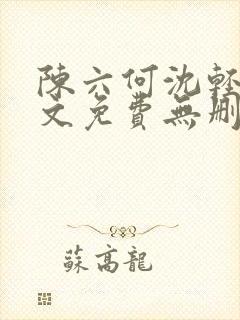 陳六何沈輕
文免費無刪
蘇高龍